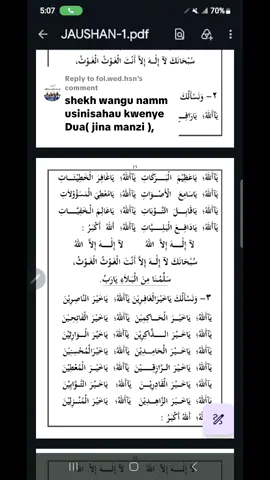 5:07
70%
JAUSHAN-1.pdf
سُبْحَانَكَ لَآ إِلٰهَ إِلاَّ أَنْتَ الْغَوْثُ الْغَوْثُ،
٢- وَنَسْأَلُكَ
Reply to fol.wed.hsn's comment
shekh wangu namm
usinisahau kwenye
Dua( jina manzi ),
يَاآللهُ؛ يَاعَظِيمَ الْبَرَكَاتِ يَاآللهُ؛ يَاغَافِرَ الْخَطِيئَاتِ
يَاآللهُ؛ يَاسَامِعَ الْأَصْوَاتِ يَاآللهُ؛ يَامُعْطِيَ الْمَسْؤُولَاتِ
يَاآللهُ؛ يَاقَابِلَ التَّوْبَاتِ يَاآللهُ؛ يَاعَالِمَ الْخَفِيَّاتِ
يَاآللهُ؛ يَادَافِعَ الْبَلِيَّاتِ يَاآللهُ؛ اَللهُ أَكْبَرُ :
لَآ إِلٰهَ إِلاَّ اللهُ لَآ إِلٰهَ إِلاَّ اللهُ
سُبْحَانَكَ لَآ إِلٰهَ إِلاَّ أَنْتَ الْغَوْثُ الْغَوْثُ،
سَلِّمْنَا مِنَ الْبَلَآءِ يَارَبِّ.
٣- وَنَسْأَلُكَ يَاخَيْرَ الْغَافِرِينَ يَاآللهُ؛ يَاخَيْرَ النَّاصِرِينَ
يَاآللهُ؛ يَاخَيْرَ الْحَاكِمِينَ يَاآللهُ؛ يَاخَيْرَ الْفَاتِحِينَ
يَاآللهُ؛ يَاخَيْرَ الذَّاكِرِينَ يَاآللهُ؛ يَاخَيْرَ الْوَارِثِينَ
يَاآللهُ؛ يَاخَيْرَ الْحَامِدِينَ يَاآللهُ؛ يَاخَيْرَ الْمُحْسِنِينَ
يَاآللهُ؛ يَاخَيْرَ الرَّازِقِينَ يَاآللهُ؛ يَاخَيْرَ الْمُعْطِينَ
يَاآللهُ؛ يَاخَيْرَ الْقَادِرِينَ يَاآللهُ؛ يَاخَيْرَ التَّوَّابِينَ
يَاآللهُ؛ يَاخَيْرَ الزَّاهِدِينَ يَاآللهُ؛ يَاخَيْرَ الْمُنْزِلِينَ
اَللهُ أَكْبَرُ :
لَآ إِلٰهَ إِلاَّ اللهُ لَآ إِلٰهَ إِلاَّ اللهُ